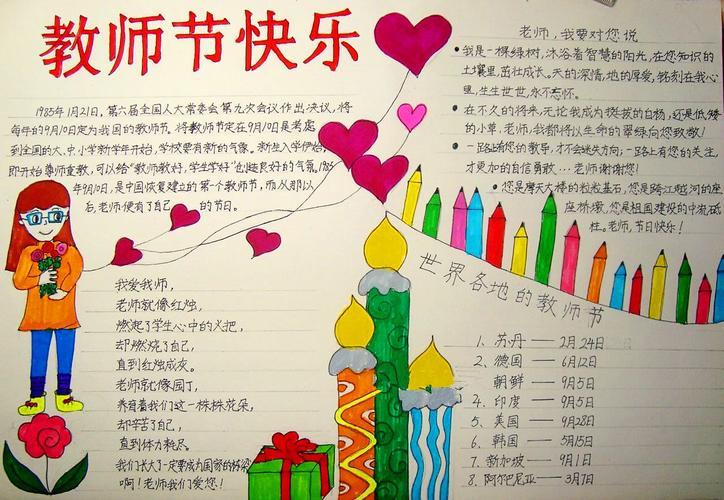 教师节快乐
1985年1月21日,第六届全国人大常委会第九次会议作出决议,将
每年的9月10日定为我国的教师节。将教师节定在9月10日是考虑
到全国的大、中、小学新学年开始,学校要有新的气象。新生入学伊始,
即开始尊师重教,可以给"教师教好,学生学好"创造良好的气氛。1985
年9月10日,是中国恢复建立的第一个教师节,而从那以
后,老师便有了自己的节日。
我爱我师,
老师就像红烛,
燃起了学生心中的火把,
却燃烧了自己,
直到红烛成灰。
老师就像园丁,
养育着我们这一株株花朵,
却辛苦了自己,
直到体力耗尽。
我们长大了一定要成为国家的栋梁
啊!老师我们爱您!
老师,我要对您说
●我是一棵绿树,沐浴着智慧的阳光,在您知识的
土壤里,茁壮成长。天的深情,地的厚爱,铭刻在我心
里,生生世世,永不忘怀。
●在不久的将来,无论我成为挺拔的白杨,还是低矮
的小草,老师,我都将以生命的翠绿向您致敬!
●一路上有您的教导,才不会迷失方向;一路上有您的关注,
才更加的自信勇敢...老师谢谢您!
●您是摩天大楼的粒粒基石,您是跨江越河的座
座桥墩,您是祖国建设的中流砥
柱。老师,节日快乐!
世界各地的教师节
1、苏丹——2月24日
2、德国——6月12日
朝鲜——9月5日
4、印度——9月5日
5、美国——9月28日
6、韩国——5月15日
7、新加坡——9月1日
8、阿尔巴尼亚——3月7日